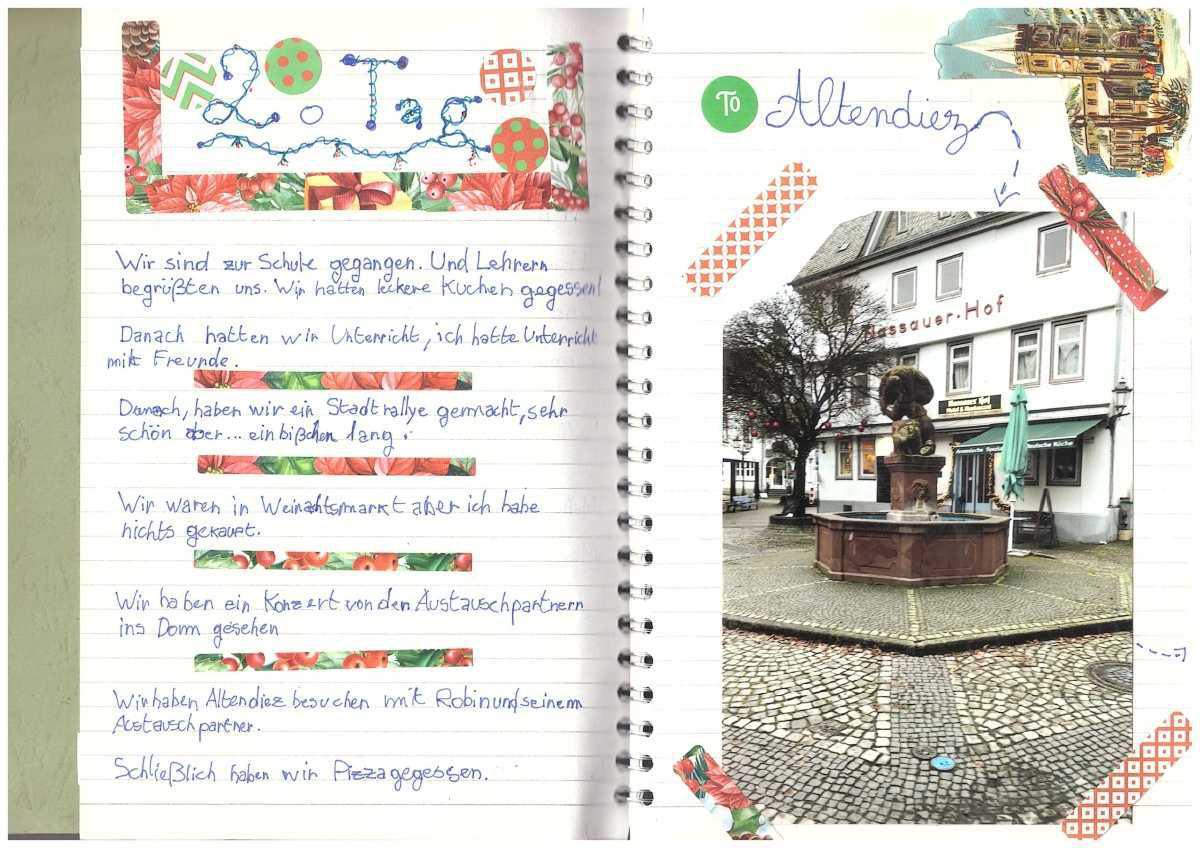 2. Tag
Wir sind zur Schule gegangen. Und Lehrern
begrüßten uns. Wir hatten leckere Kuchen gegessen!
Danach hatten wir Unterricht, ich hatte Unterricht
mit Freunde.
Danach, haben wir ein Stadtrallye gemacht, sehr
schön aber... ein bißchen lang.
Wir waren in Weinachtsmarkt aber ich habe
nichts gekauft.
Wir haben ein Konzert von den Austauschpartnern
ins Dom gesehen
Wir haben Altendiez besuchen mit Robin und seinem
Austauschpartner.
Schließlich haben wir Pizza gegessen.
TO Altendiez
Nassauer-Hof
Nassauer Hof
Deutsche Küche